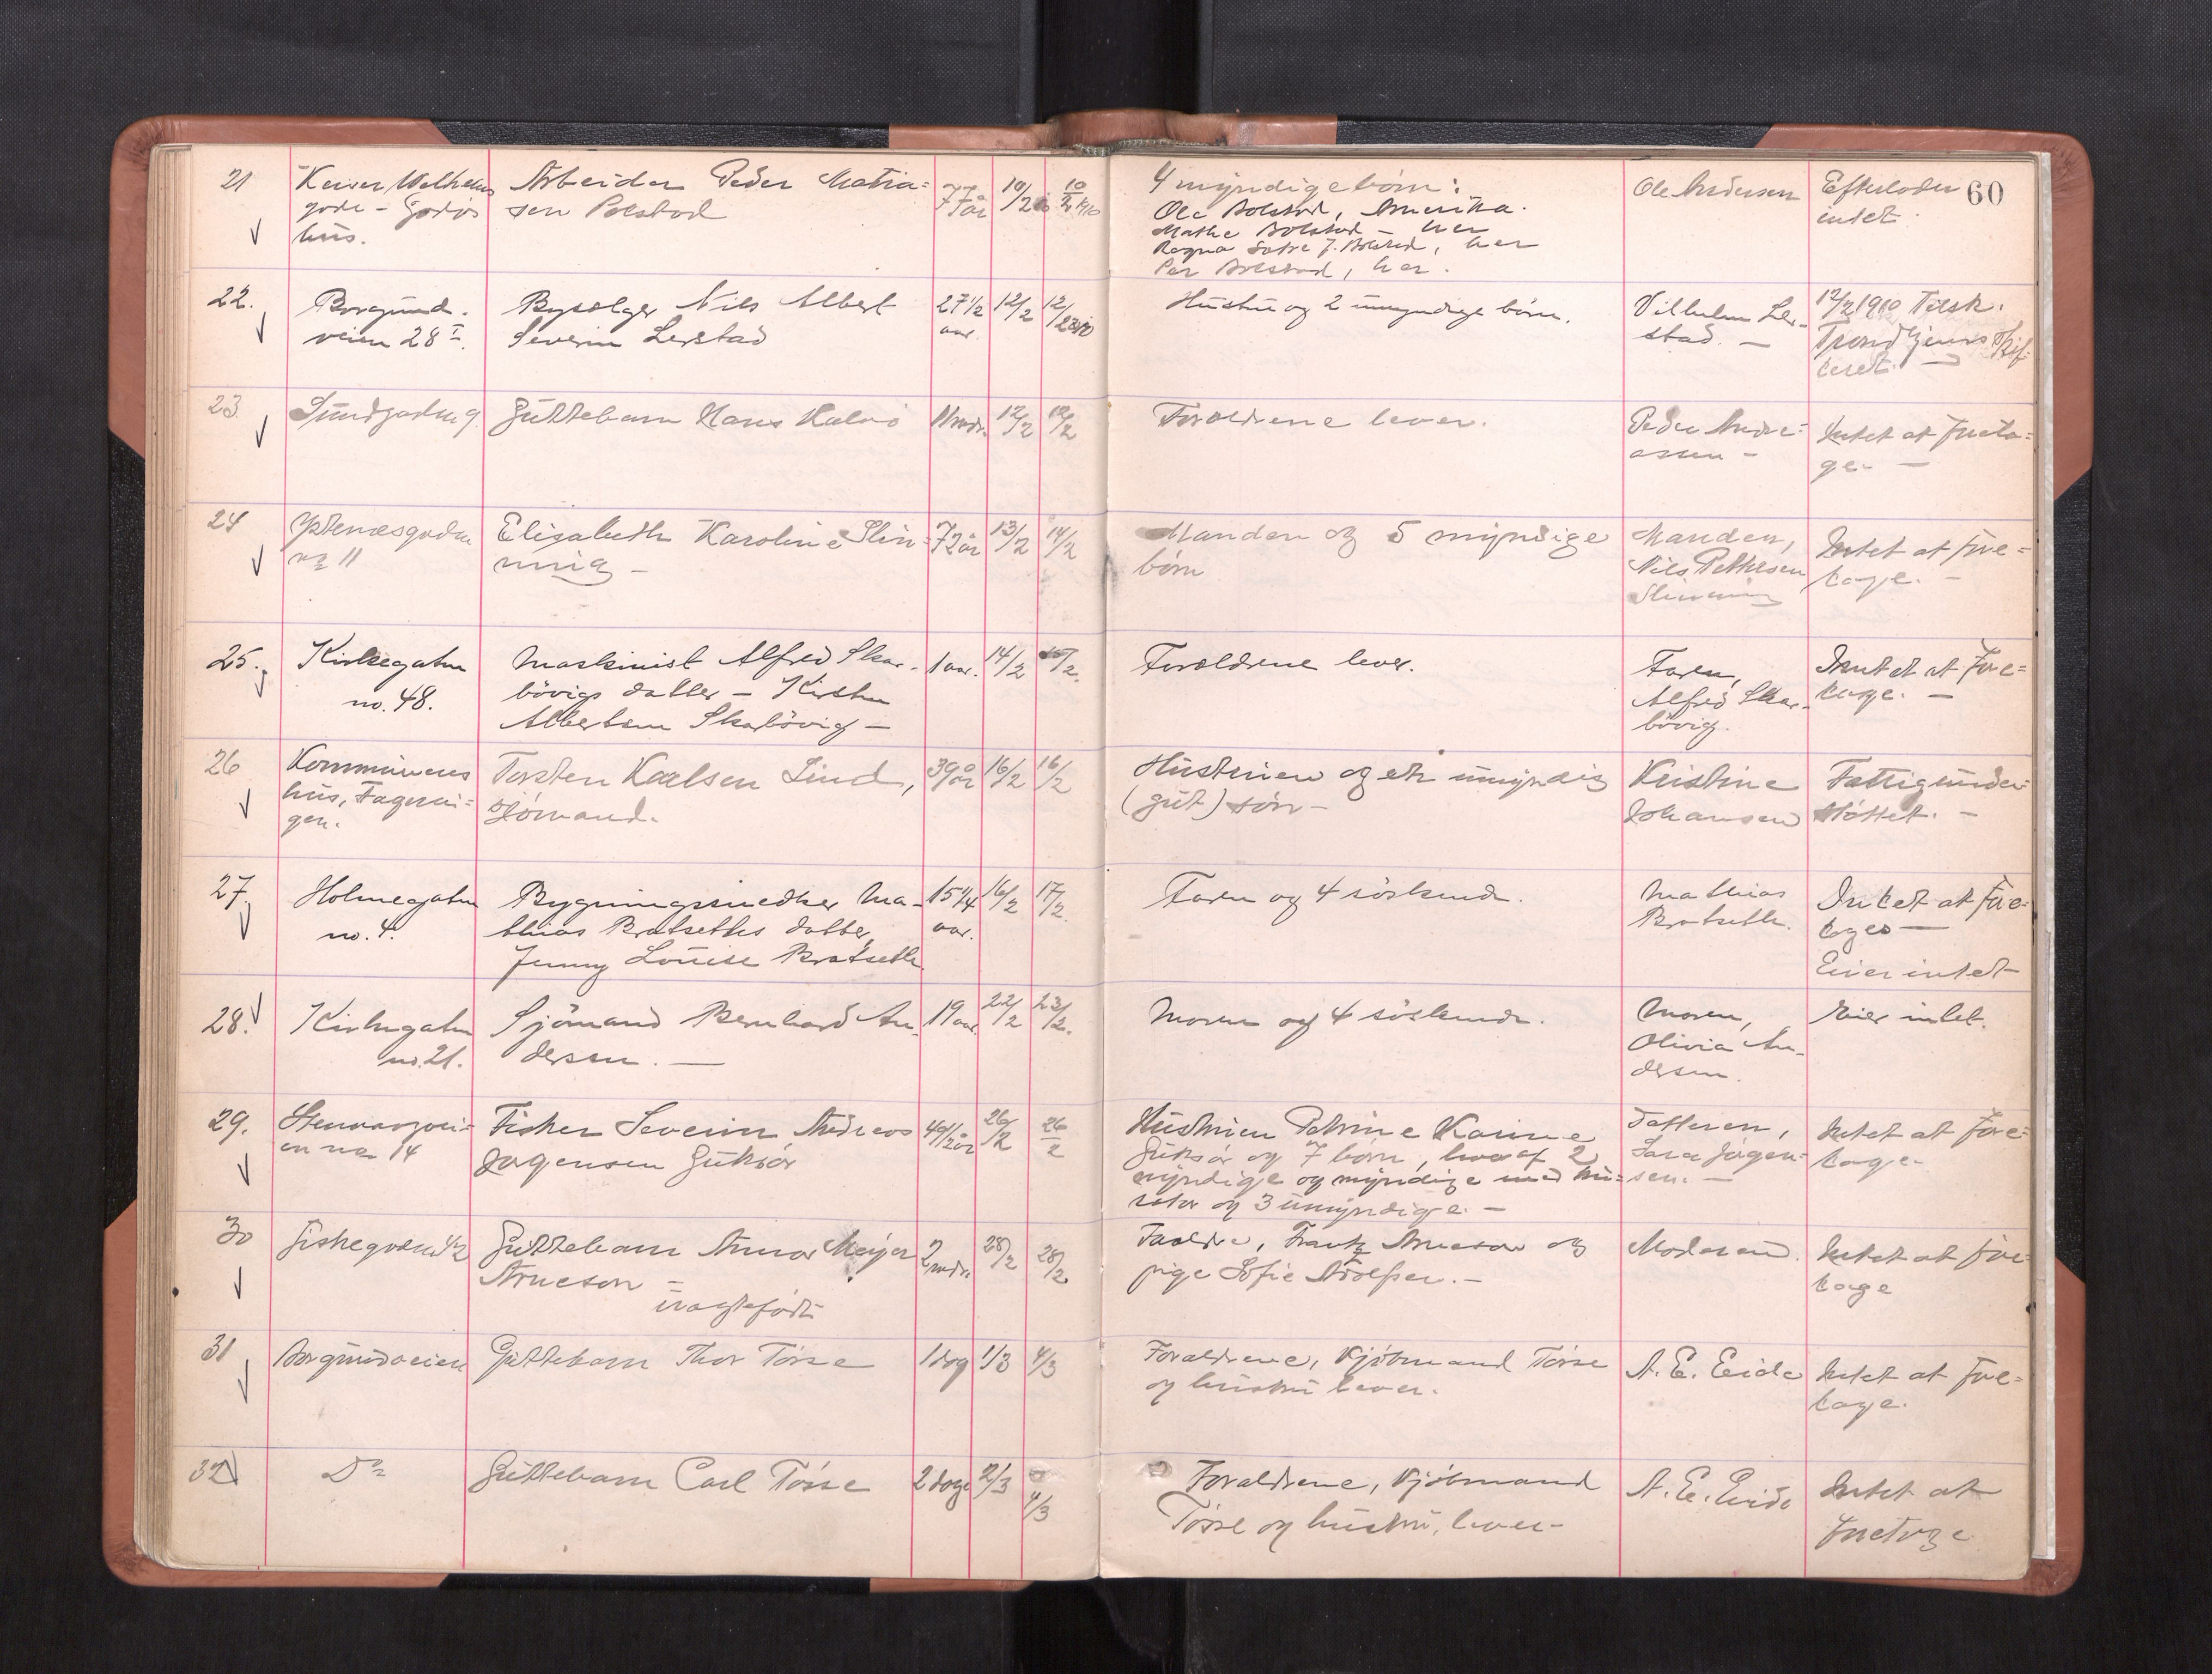 60
21
Keiser Wilhelms
gade - Godøs
hus.
Arbeider Peder Matia=
sen Bolstad
77 år
10/2
10/2 1910
4 myndige børn:
Ole Bolstad, Amerika.
Mathe Bolstad - her
Ragna Bolstad, her
Per Bolstad, her.
Ole Andersen
Efterlader
intet.
22.
Borgund.
veien 28 I.
Bysælger Nils Albert
Severin Lerstad
27 1/2
aar.
12/2
12/2 1910
Hustru og 2 umyndige børn.
Vilhelm Ler-
stad. —
12/2 1910 Tilsk.
Trondhjems Skif-
teret. —
23
Sundgaden 9
Guttebarn Hans Kalvø
11 mdr.
12/2
12/2
Forældrene lever.
Peder Andre=
assen -
Intet at foreta=
ge. —
24
Ystenæsgaden
no 11
Elisabeth Karoline Slin=
ning -
72 år
13/2
14/2
Manden og 5 myndige
børn
Manden,
Nils Pettersen
Slinning
Intet at fore=
tage. -
25.
Kirkegaten
no. 48.
Maskinist Alfred Skar-
bövigs datter - Kirsten
Albertsen Skarbövig -
1 aar.
14/2
15/2.
Forældrene lever.
Faren,
Alfred Skar-
bövig.
Intet at fore=
tage. -
26
Kommunens
hus, Fagervi=
gen.
Torsten Karlsen Lind,
sjømand.
39 år
16/2
16/2
Hustruen og et umyndig
(gut) søn -
Kristine
Johansen
Fattigunder-
støttet. -
27.
Holmegaten
no. 4.
Bygningssnedker Ma-
thias Bratseths datter,
Jenny Louise Bratseth
15 1/4
aar.
16/2
17/2.
Faren og 4 söskende.
Mathias
Bratseth.
Intet at fore-
tages —
Eier intet -
28.
Kirkegaten
no. 21.
Sjömand Bernhard An-
dersen. —
19 aar.
22/2
23/2.
Moren og 4 söskende.
Moren,
Olivia An-
dersen.
Eier intet.
29.
Stenvaagvei=
en no 14
Fisker Severin Andreas
Jørgensen Giskeør
49 1/2 år
26/2
26/2
Hustruen Petrine Karine
og 7 børn, hvoraf 2
myndige og myndige med ku=
rator og 3 umyndige. -
Datteren,
Sara Jørgen=
sen. -
Intet at fore=
tage -
30
Giskegaden 42
Guttebarn Arnor Meyer
Arneson -
uægtefødt
2 mdr.
28/2
28/2
Foreldre, Frantz Arneson og
pige Sofie Adolfsen. -
Intet at fore-
tage
31
Borgundveien
Guttebarn Thor Tørse
1 dag
1/3
4/3
Forældrene, Kjøbmand Tørse
og hustru lever.
A. E. Eide
Intet at fore=
tage.
32
Do
Guttebarn Carl Tørse
2 dage
2/3
4/3
Forældrene, Kjøbmand
Tørse og hustru, lever -
A. E. Eide
Intet at
foretage